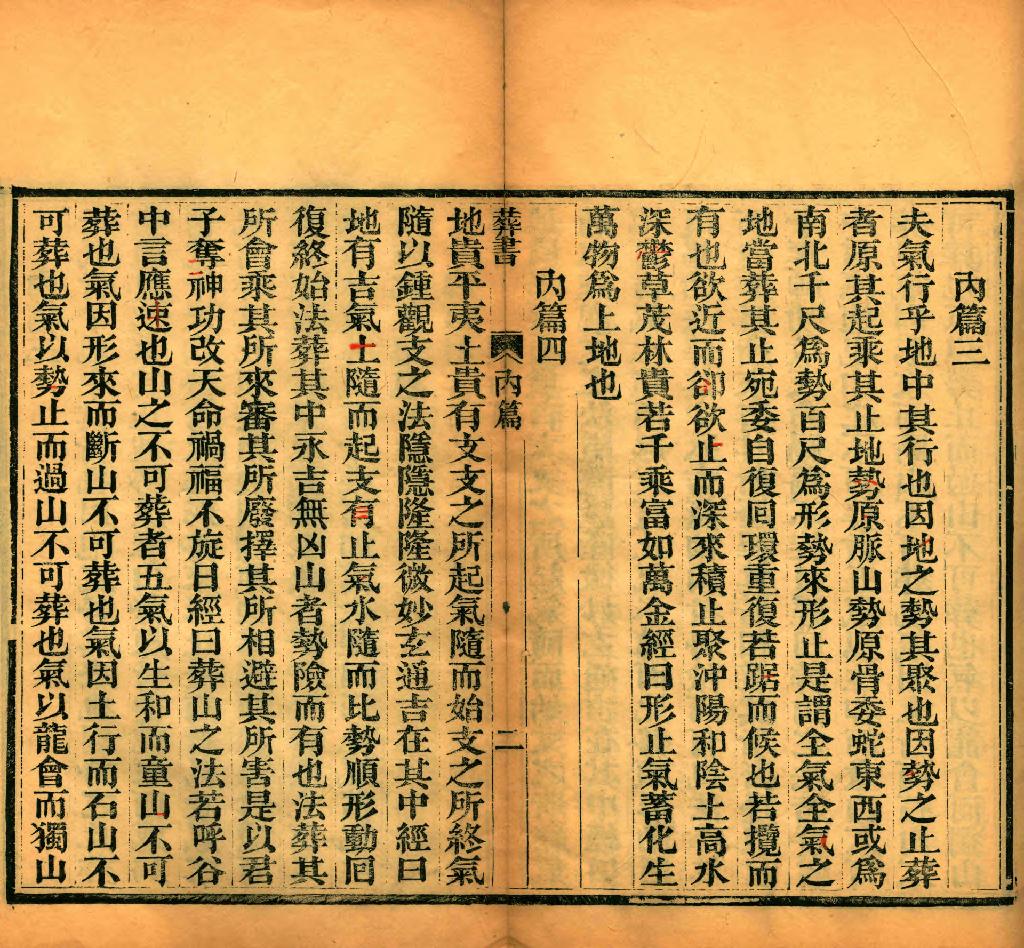 內篇三
夫氣行乎地中其行也因地之勢其聚也因勢之止葬
者原其起乘其止地勢原脈山勢原骨委蛇東西或爲
南北千尺爲勢百尺爲形勢來形止是謂全氣全氣之
地當葬其止宛委自復回環重復若踞而候也若攬而
有也欲近而卻欲止而深來積止聚沖陽和陰土高水
深鬱草茂林貴若千乘富如萬金經曰形止氣蓄化生
萬物爲上地也
內篇四
葬書
內篇
二
地貴平夷土貴有支支之所起氣隨而始支之所終氣
隨以鍾觀支之法隱隱隆隆微妙玄通吉在其中經曰
地有吉氣土隨而起支有止氣水隨而比勢順形動回
復終始法葬其中永吉無凶山者勢險而有也法葬其
所會乘其所來審其所廢擇其所相避其所害是以君
子奪神功改天命禍福不旋日經曰葬山之法若呼谷
中言應速也山之不可葬者五氣以生和而童山不可
葬也氣因形來而斷山不可葬也氣因土行而石山不
可葬也氣以勢止而過山不可葬也氣以龍會而獨山